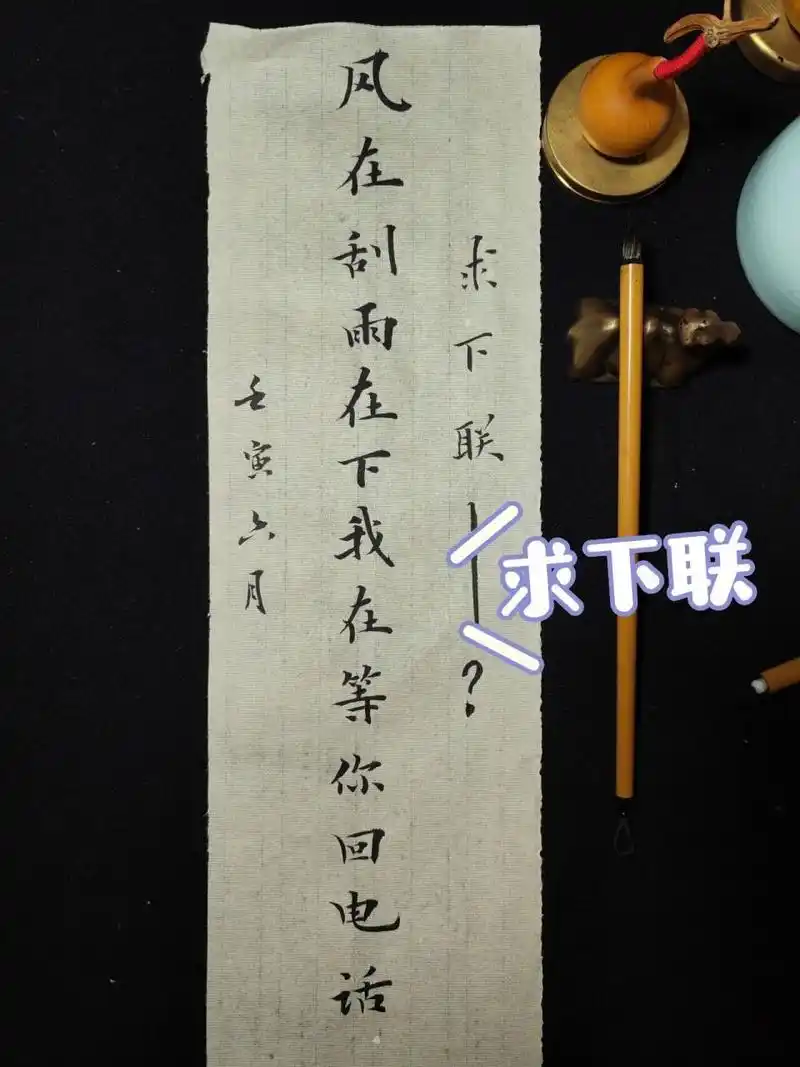 求下联——？
风在刮雨在下我在等你回电话
壬寅六月
求下联